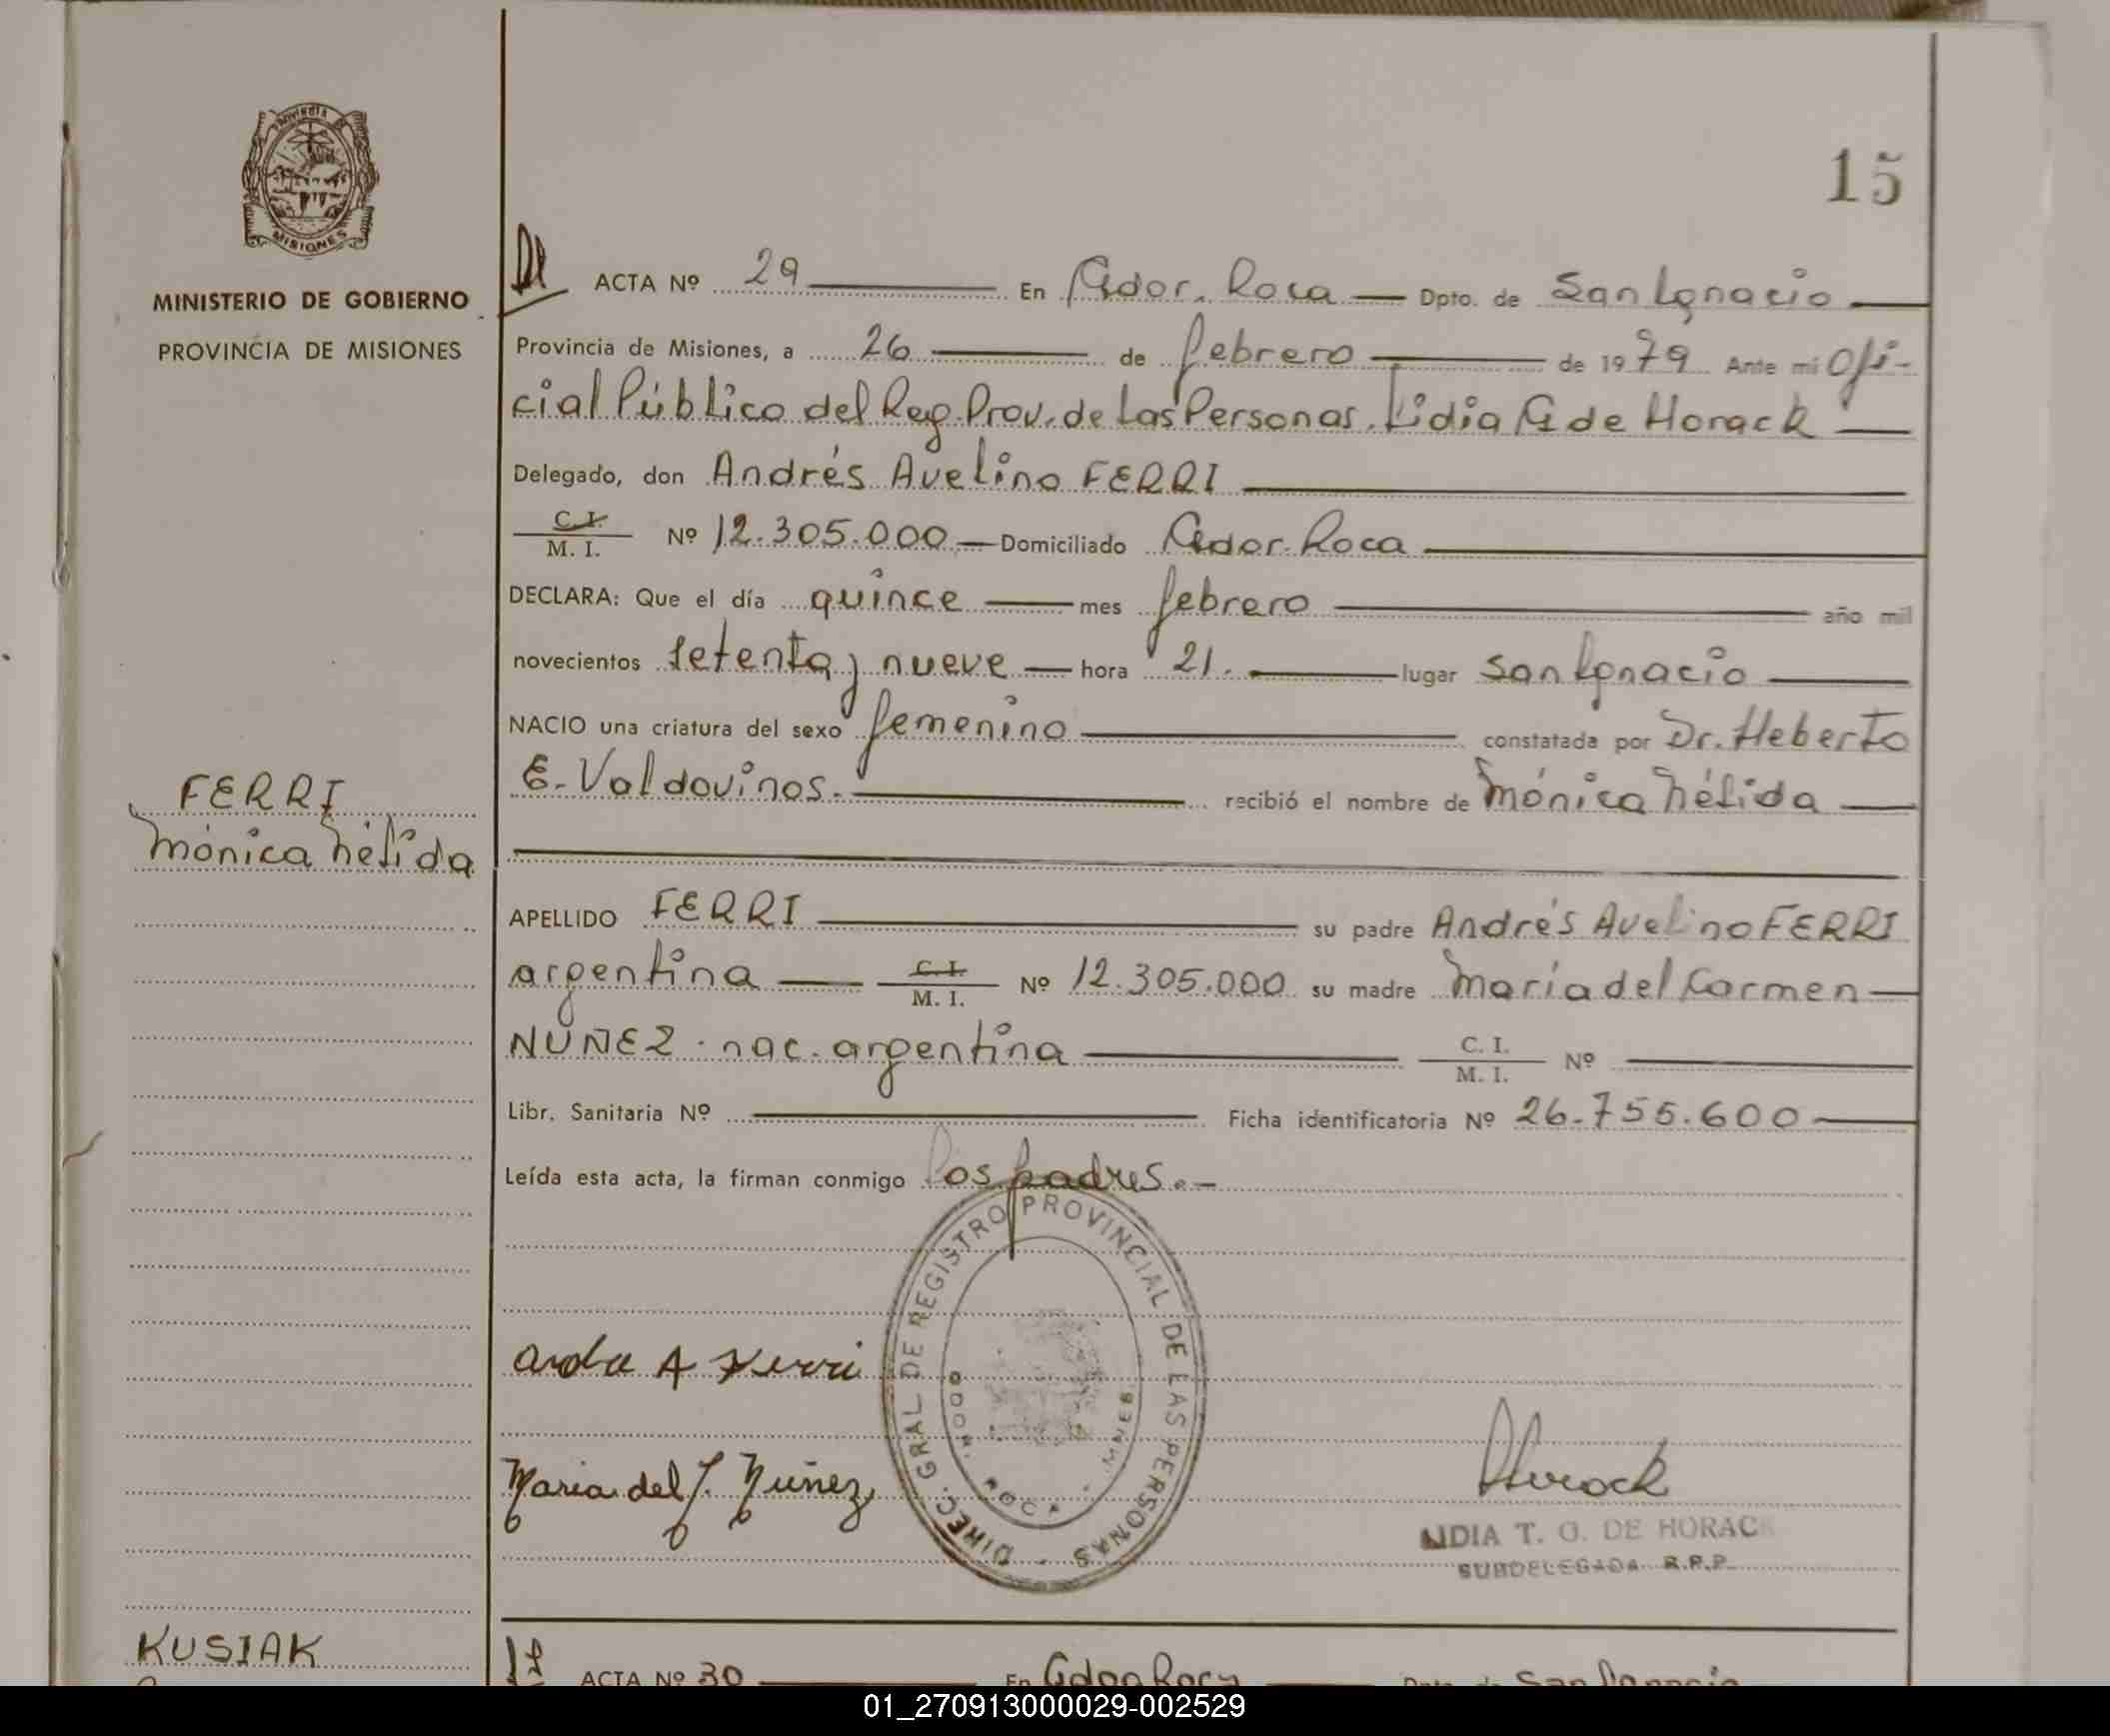 PROVINCIA DE
MISIONES
MINISTERIO DE GOBIERNO
PROVINCIA DE MISIONES
15
ACTA Nº 29 En Gdor. Roca Dpto. de San Ignacio
Provincia de Misiones, a 26 de febrero de 1979 Ante mi Ofi-
cial Público del Reg. Prov. de Las Personas. Lidia G de Horack
Delegado, don Andrés Avelino FERRI
C.I. / M. I. Nº 12.305.000 Domiciliado Gdor. Roca
DECLARA: Que el día quince mes febrero año mil
novecientos setenta y nueve hora 21. lugar San Ignacio
NACIO una criatura del sexo femenino constatada por Dr. Heberto
E. Valdovinos. recibió el nombre de Mónica Nélida
FERRI
Mónica Nélida
APELLIDO FERRI su padre Andrés Avelino FERRI
argentina C.I. / M. I. Nº 12.305.000 su madre María del Carmen
NUÑEZ. nac. argentina C. I. / M. I. Nº
Libr. Sanitaria Nº Ficha identificatoria Nº 26.755.600
Leída esta acta, la firman conmigo los padres.
DIREC. GRAL DE REGISTRO PROVINCIAL DE LAS PERSONAS
GDOR. ROCA
A Ferri
Maria del C. Nuñez
Horack
LIDIA T. G. DE HORACK
SUBDELEGADA R.P.P.
KUSIAK
ACTA Nº 30 En Gdor Roca Dpto. de San Ignacio
01_270913000029-002529